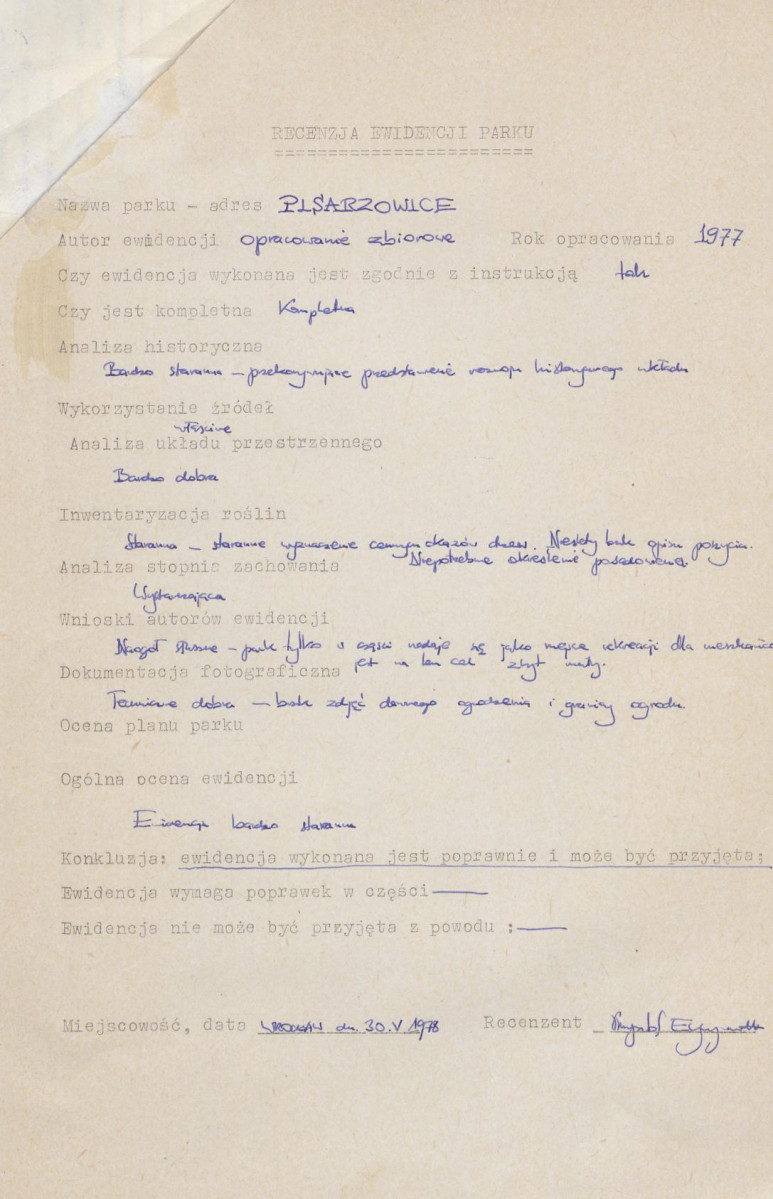 RECENZJA EWIDENCJI PARKU
Nazwa parku - adres PISARZOWICE
Autor ewidencji opracowanie zbiorowe Rok opracowania 1977
Czy ewidencja wykonana jest zgodnie z instrukcją tak
Czy jest kompletna Kompletna
Analiza historyczna
Bardzo staranna – przekonywujące przedstawienie rozwoju historycznego układu
Wykorzystanie źródeł
właściwe
Analiza układu przestrzennego
Bardzo dobra
Inwentaryzacja roślin
Staranna – staranne wyznaczenie cennych okazów drzew. Niestety brak opisu poszycia.
Niepotrzebne określenie
Analiza stopnia zachowania
Wystarczająca
Wnioski autorów ewidencji
Naogół słuszne – park tylko w części nadaje się jako miejsce rekreacji dla mieszkańców
jest na ten cel zbyt mały.
Dokumentacja fotograficzna
dobra – brak zdjęć dawnego ogrodzenia i granicy ogrodu
Ocena planu parku
Ogólna ocena ewidencji
Ewidencja bardzo staranna
Konkluzja: ewidencja wykonana jest poprawnie i może być przyjęta;
Ewidencja wymaga poprawek w części —
Ewidencja nie może być przyjęta z powodu : —
Miejscowość, data WROCŁAW dn. 30.V 1978 Recenzent Krzysztof